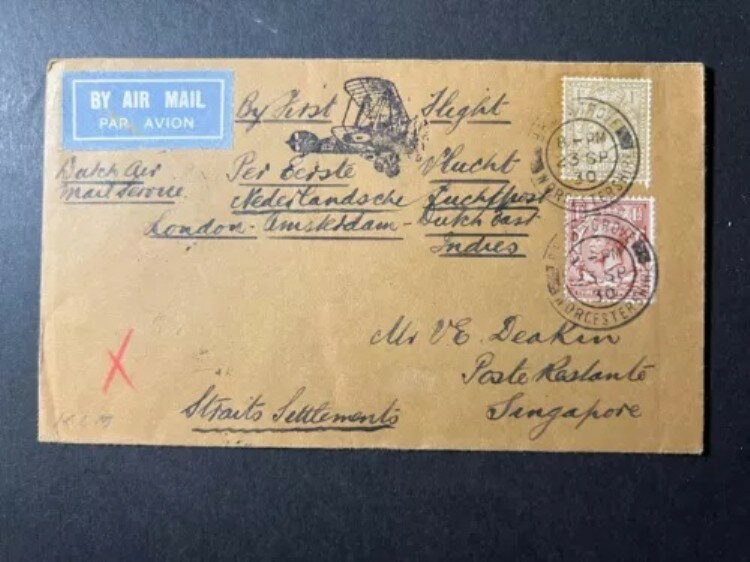 BY AIR MAIL
PAR AVION
By First Flight
Dutch Air
Mail Service
Per Eerste Vlucht
Nederlandsche Luchtpost
London - Amsterdam - Dutch East
Indies
8 - PM
23 SP
30
WORCESTERSHIRE
PM
SP
30
WORCESTERSHIRE
Mr V E. Deakin
Poste Restante
Singapore
Straits Settlements
X